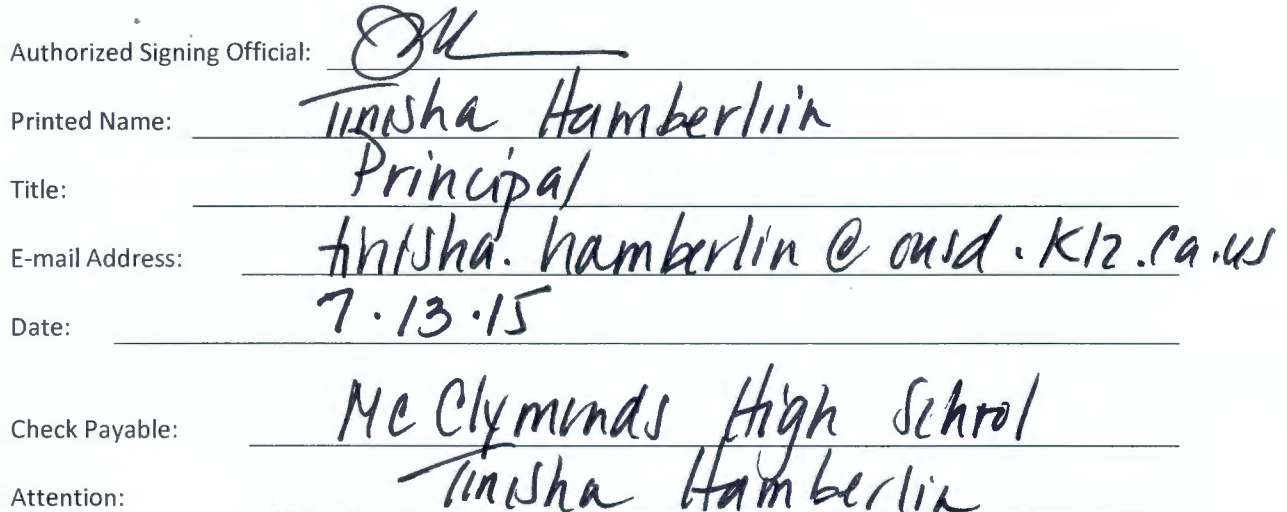 Authorized Signing Official:
Printed Name: Tinisha Hamberliin
Title: Principal
E-mail Address: tinisha.hamberlin@ousd.k12.ca.us
Date: 7.13.15
Check Payable: McClymonds High School
Attention: Tinisha Hamberlin